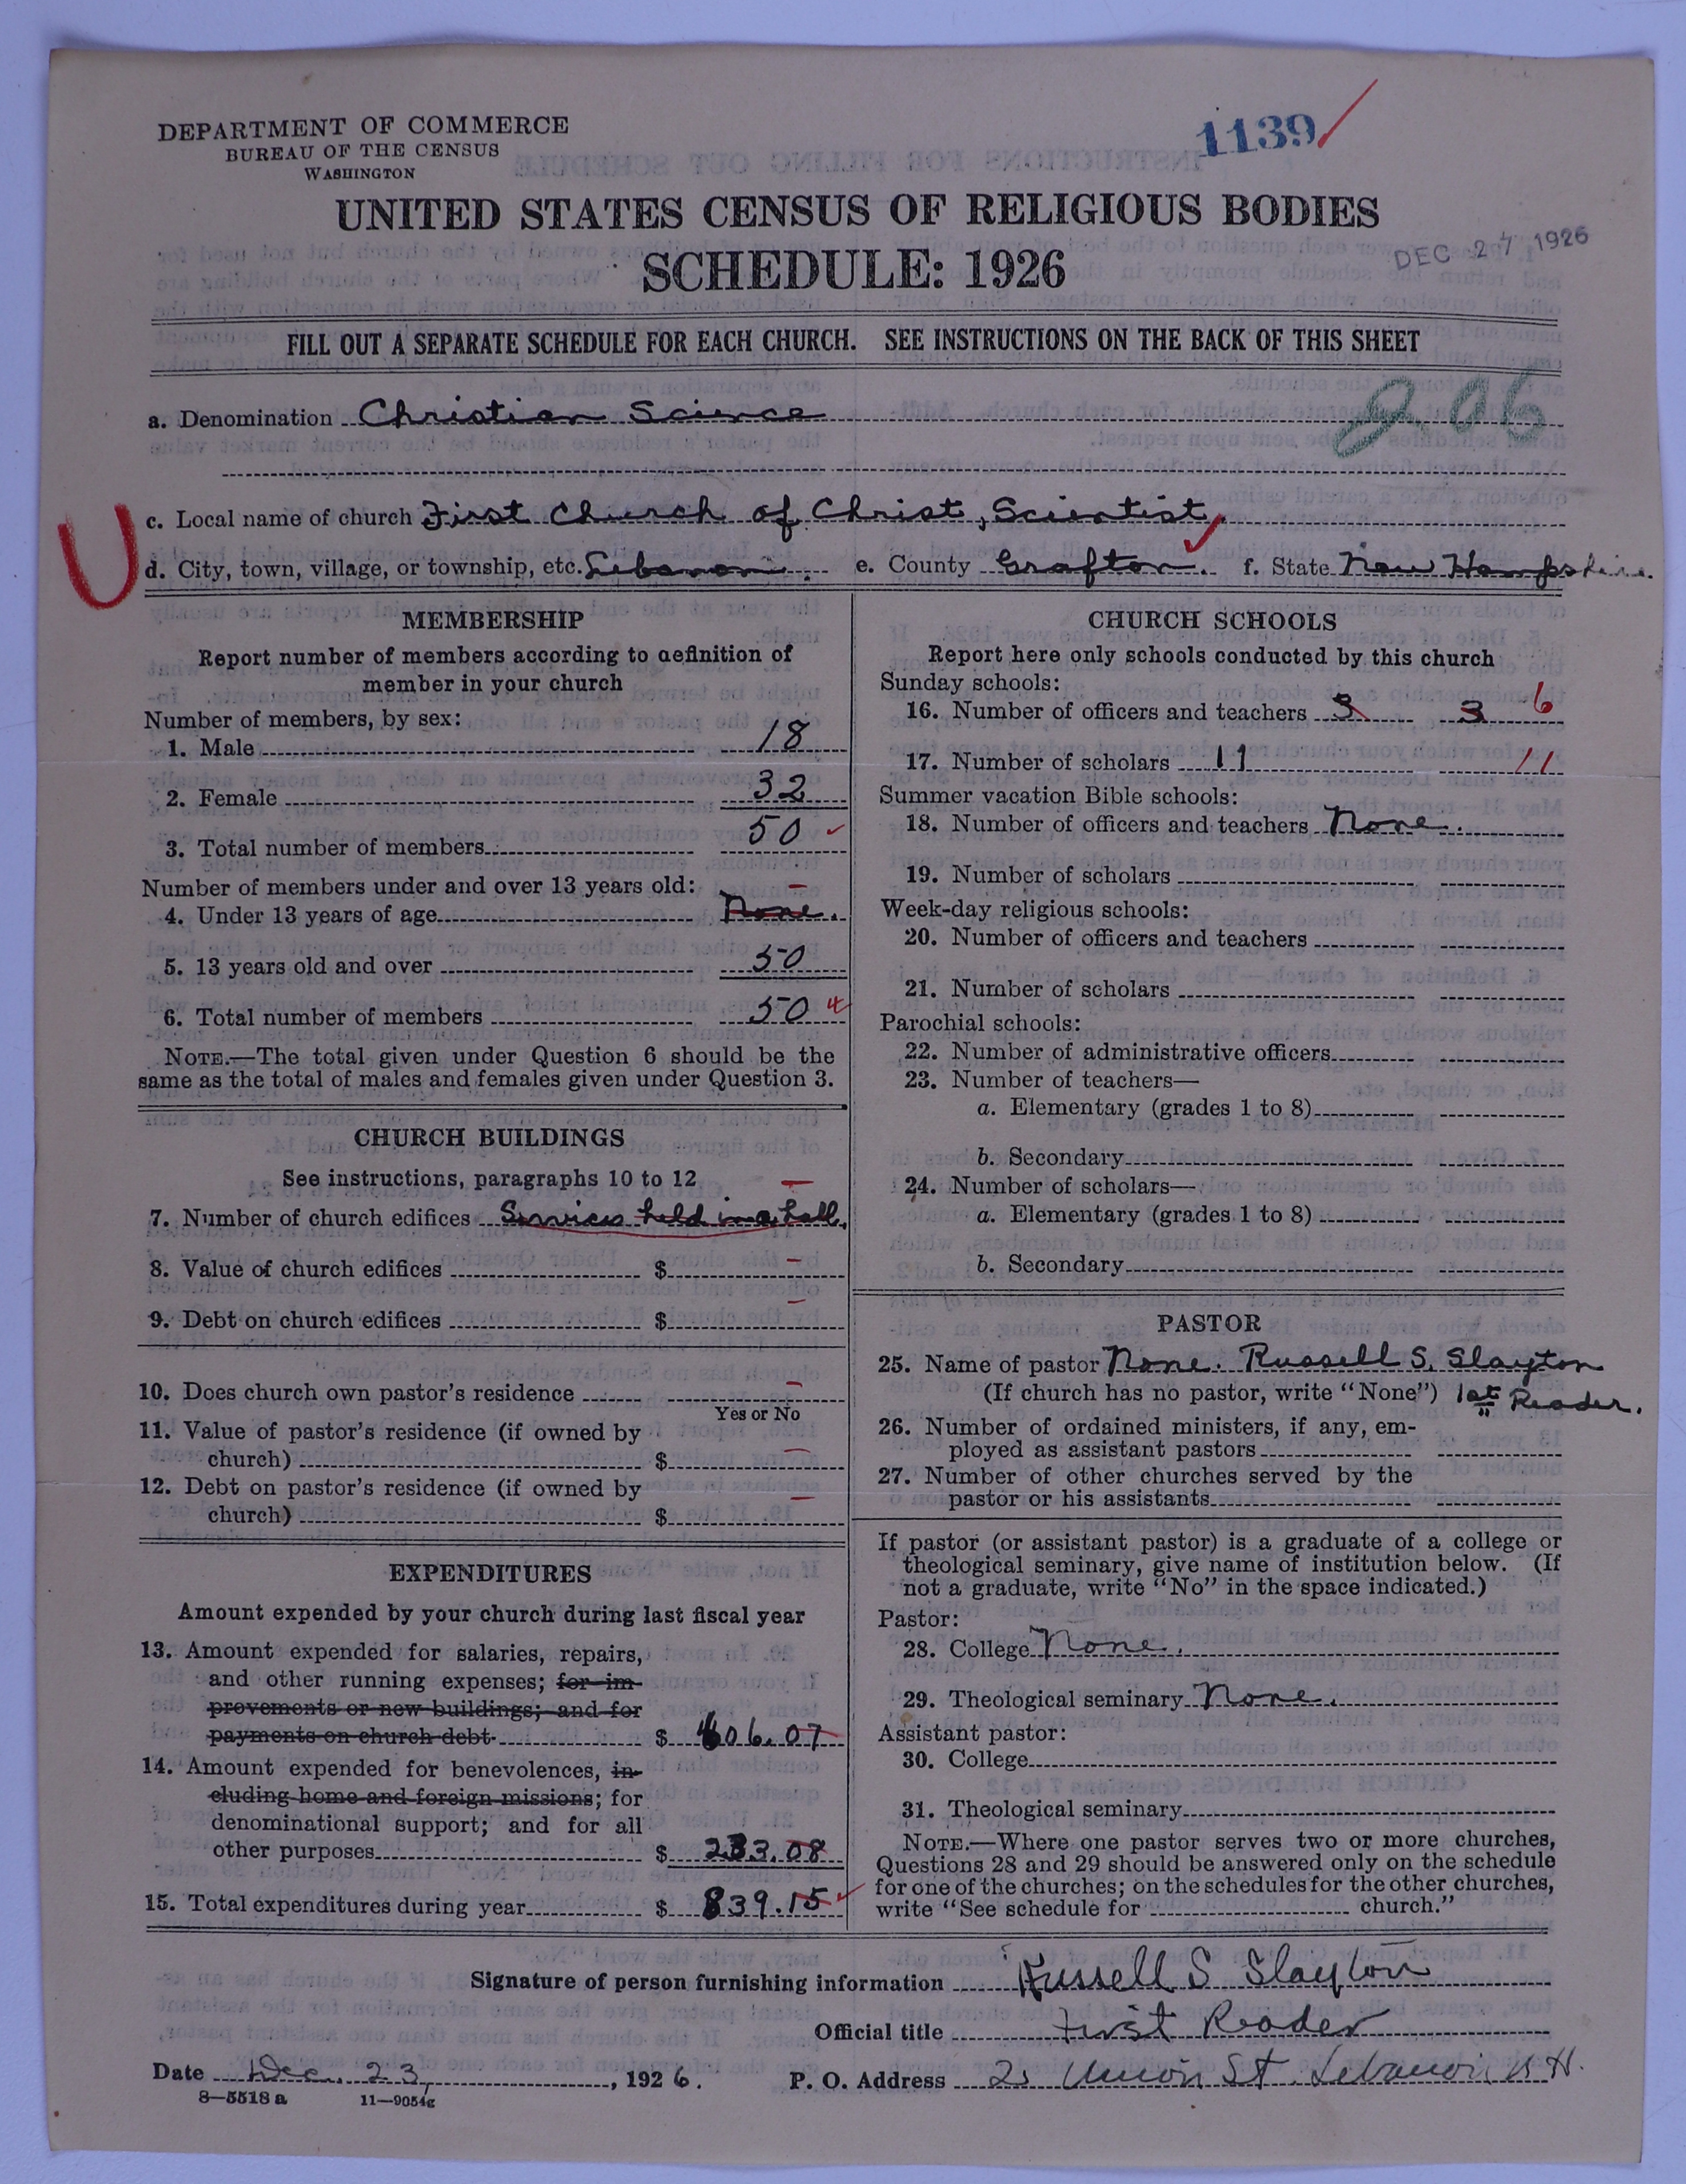 DEPARTMENT OF COMMERCE
BUREAU OF THE CENSUS
WASHINGTON
1139
UNITED STATES CENSUS OF RELIGIOUS BODIES
SCHEDULE: 1926
DEC 27 1926
FILL OUT A SEPARATE SCHEDULE FOR EACH CHURCH. SEE INSTRUCTIONS ON THE BACK OF THIS SHEET
a. Denomination Christian Science
c. Local name of church First Church of Christ, Scientist,
U
d. City, town, village, or township, etc. Lebanon. e. County Grafton. f. State New Hampshire.
MEMBERSHIP
Report number of members according to definition of
member in your church
Number of members, by sex:
1. Male 18
2. Female 32
3. Total number of members 50
Number of members under and over 13 years old:
4. Under 13 years of age None.
5. 13 years old and over 50
6. Total number of members 50
NOTE.—The total given under Question 6 should be the
same as the total of males and females given under Question 3.
CHURCH BUILDINGS
See instructions, paragraphs 10 to 12
7. Number of church edifices Services held in a hall.
8. Value of church edifices $
9. Debt on church edifices $
10. Does church own pastor's residence
Yes or No
11. Value of pastor's residence (if owned by
church) $
12. Debt on pastor's residence (if owned by
church) $
EXPENDITURES
Amount expended by your church during last fiscal year
13. Amount expended for salaries, repairs,
and other running expenses; for im-
provements or new buildings; and for
payments on church debt $ 606.07
14. Amount expended for benevolences, in-
cluding home and foreign missions; for
denominational support; and for all
other purposes $ 233.08
15. Total expenditures during year $ 839.15
CHURCH SCHOOLS
Report here only schools conducted by this church
Sunday schools:
16. Number of officers and teachers 3 3 6
17. Number of scholars 11 11
Summer vacation Bible schools:
18. Number of officers and teachers None.
19. Number of scholars
Week-day religious schools:
20. Number of officers and teachers
21. Number of scholars
Parochial schools:
22. Number of administrative officers
23. Number of teachers—
a. Elementary (grades 1 to 8)
b. Secondary
24. Number of scholars—
a. Elementary (grades 1 to 8)
b. Secondary
PASTOR
25. Name of pastor None. Russell S. Slayton
(If church has no pastor, write "None") 1st Reader.
26. Number of ordained ministers, if any, em-
ployed as assistant pastors
27. Number of other churches served by the
pastor or his assistants
If pastor (or assistant pastor) is a graduate of a college or
theological seminary, give name of institution below. (If
not a graduate, write "No" in the space indicated.)
Pastor:
28. College None.
29. Theological seminary None.
Assistant pastor:
30. College
31. Theological seminary
NOTE.—Where one pastor serves two or more churches,
Questions 28 and 29 should be answered only on the schedule
for one of the churches; on the schedules for the other churches,
write "See schedule for church."
Signature of person furnishing information Russell S Slayton
Official title First Reader
Date Dec. 23, 1926. P. O. Address 2 Union St. Lebanon N H.
8—5518 a 11—9054g